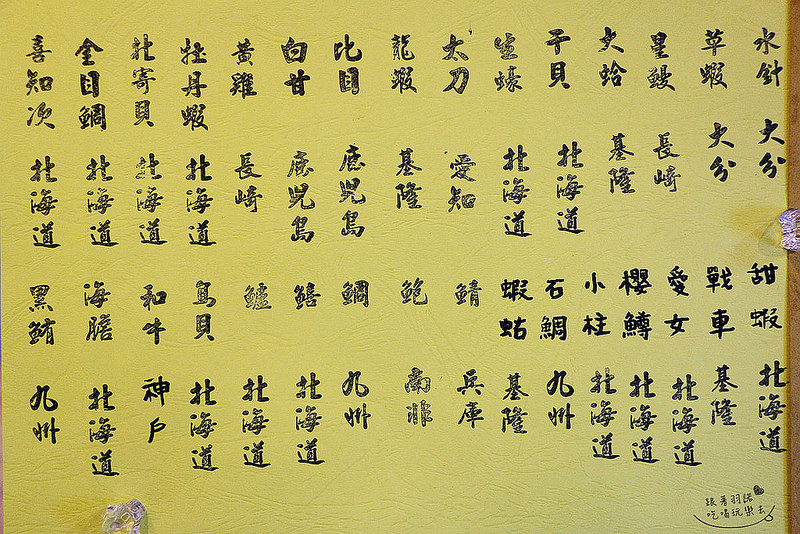 水針 大分
草蝦 大分
星鰻 長崎
大蛤 基隆
干貝 北海道
生蠔 北海道
太刀 愛知
龍蝦 基隆
比目 鹿兒島
白甘 鹿兒島
黃雞 長崎
牡丹蝦 北海道
北寄貝 北海道
金目鯛 北海道
喜知次 北海道
甜蝦 北海道
戦車 基隆
愛女 北海道
櫻鱒 北海道
小柱 北海道
石鯛 九州
蝦蛄 基隆
鯖 兵庫
鮑 南非
鯛 九州
北海道
鱸 北海道
鳥貝 北海道
和牛 神戶
海膽 北海道
黑鮪 九州
跟著羽諾
吃喝玩樂去